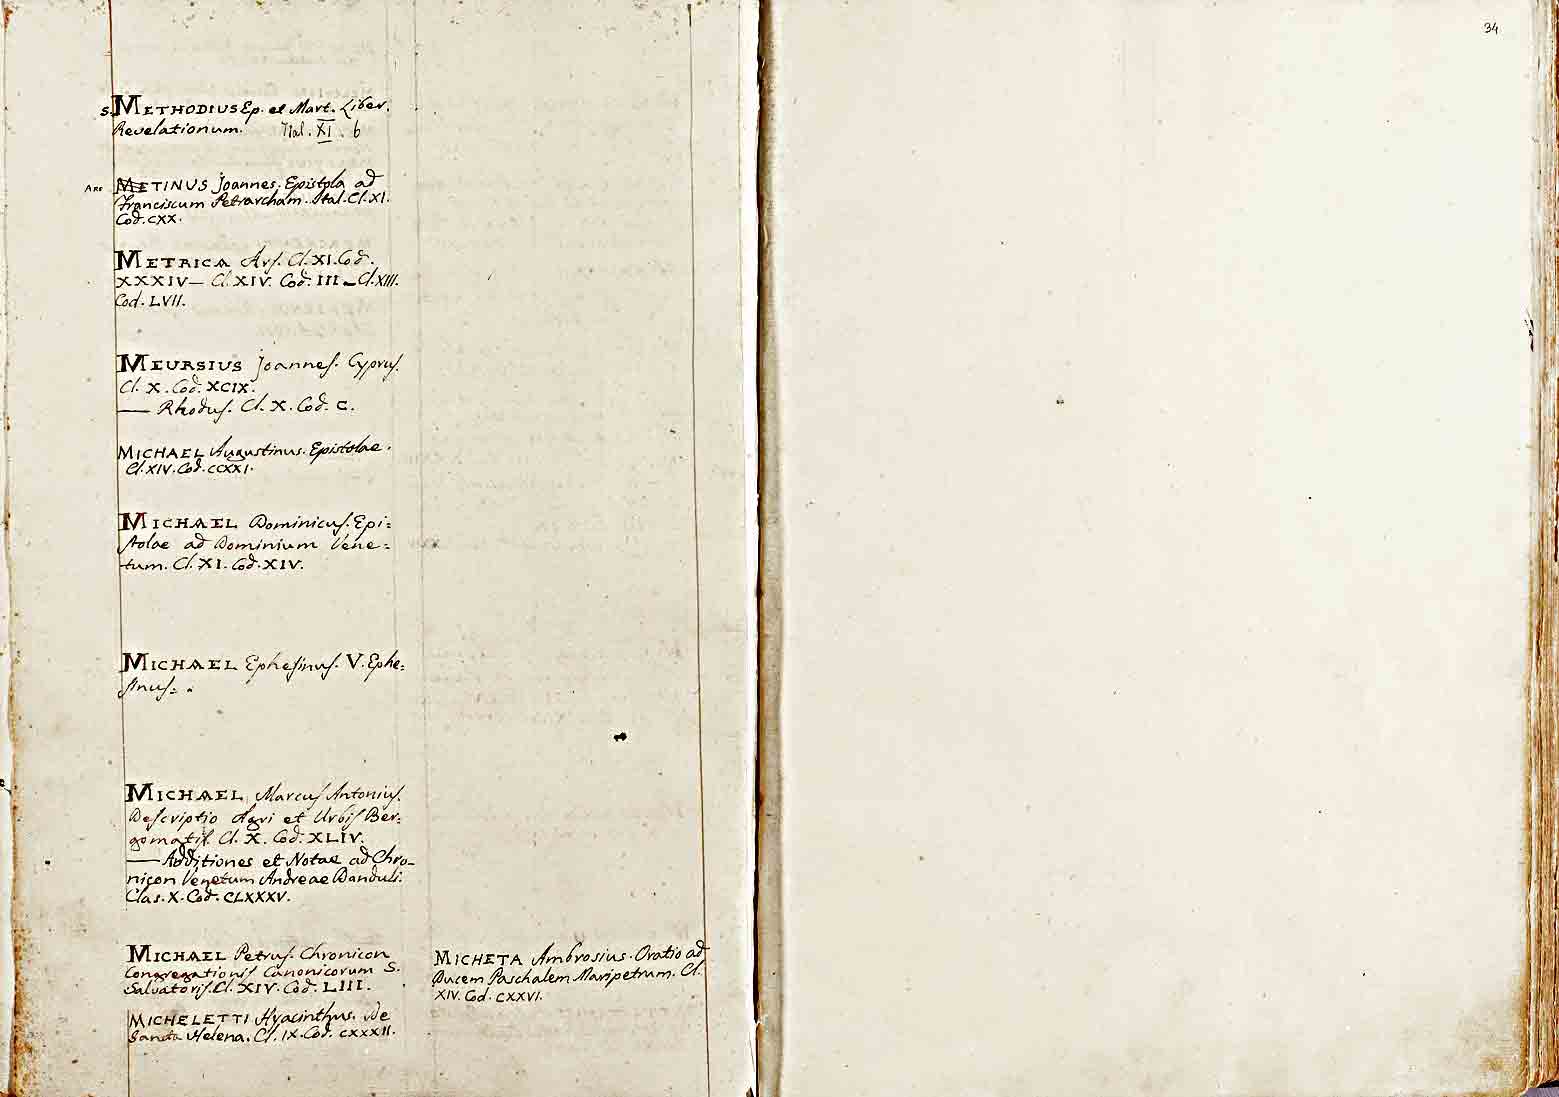 34
S. METHODIUS Ep. et Mart. Liber.
Revelationum. Ital. XI. 6
ARE METINUS Joannes. Epistola ad
Franciscum Petrarcham. Ital. Cl. XI.
Cod. CXX.
METRICA Ars. Cl. XI. Cod.
XXXIV — Cl. XIV. Cod. III — Cl. XIII.
Cod. LVII.
MEURSIUS Joannes. Cyprus.
Cl. X. Cod. XCIX.
— Rhodus. Cl. X. Cod. C.
MICHAEL Augustinus. Epistolae.
Cl. XIV. Cod. CCXXI.
MICHAEL Dominicus. Epi=
stolae ad Dominium Vene=
tum. Cl. XI. Cod. XIV.
MICHAEL Ephesinus. V. Ephe=
sinus.
MICHAEL Marcus Antonius.
Descriptio Agri et Urbis Ber=
gomatis. Cl. X. Cod. XLIV.
— Additiones et Notae ad Chro-
nicon Venetum Andreae Danduli.
Clas. X. Cod. CLXXXV.
MICHAEL Petrus. Chronicon
Congregationis Canonicorum S.
Salvatoris. Cl. XIV. Cod. LIII.
MICHELETTI Hyacinthus. De
Sancta Helena. Cl. IX. Cod. CXXXII.
MICHETA Ambrosius. Oratio ad
Ducem Paschalem Maripetrum. Cl.
XIV. Cod. CXXVI.